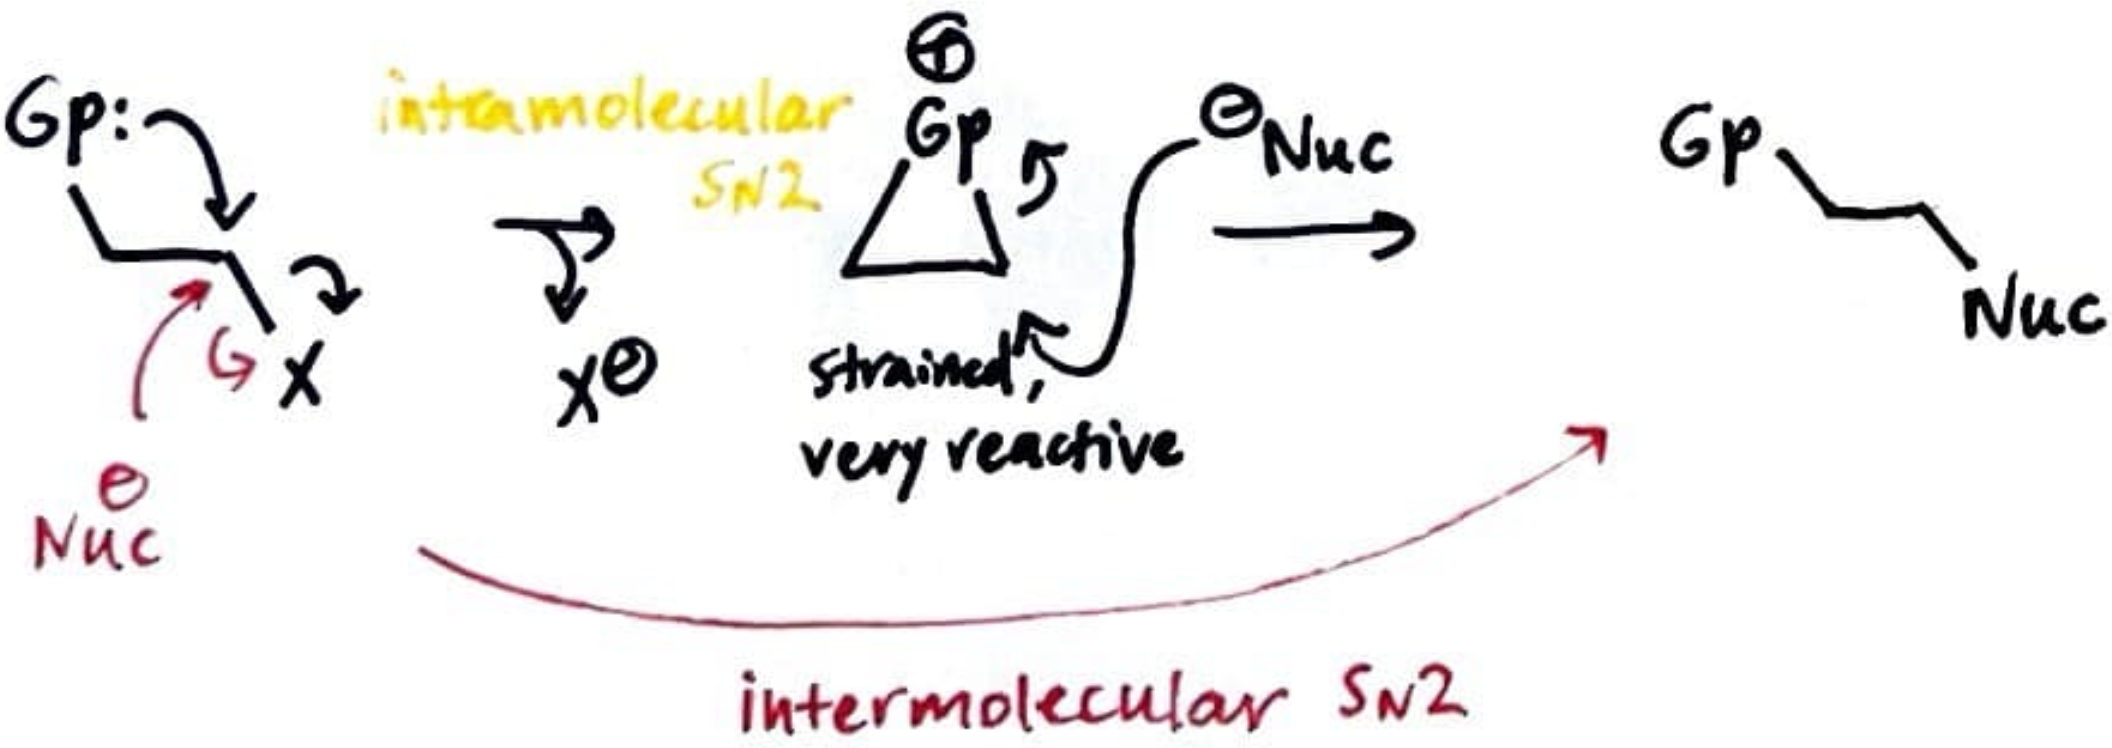 Gp:
X
⊖
Nuc
intramolecular
SN2
X⊖
⊕
Gp
strained,
very reactive
⊖Nuc
Gp
Nuc
intermolecular SN2